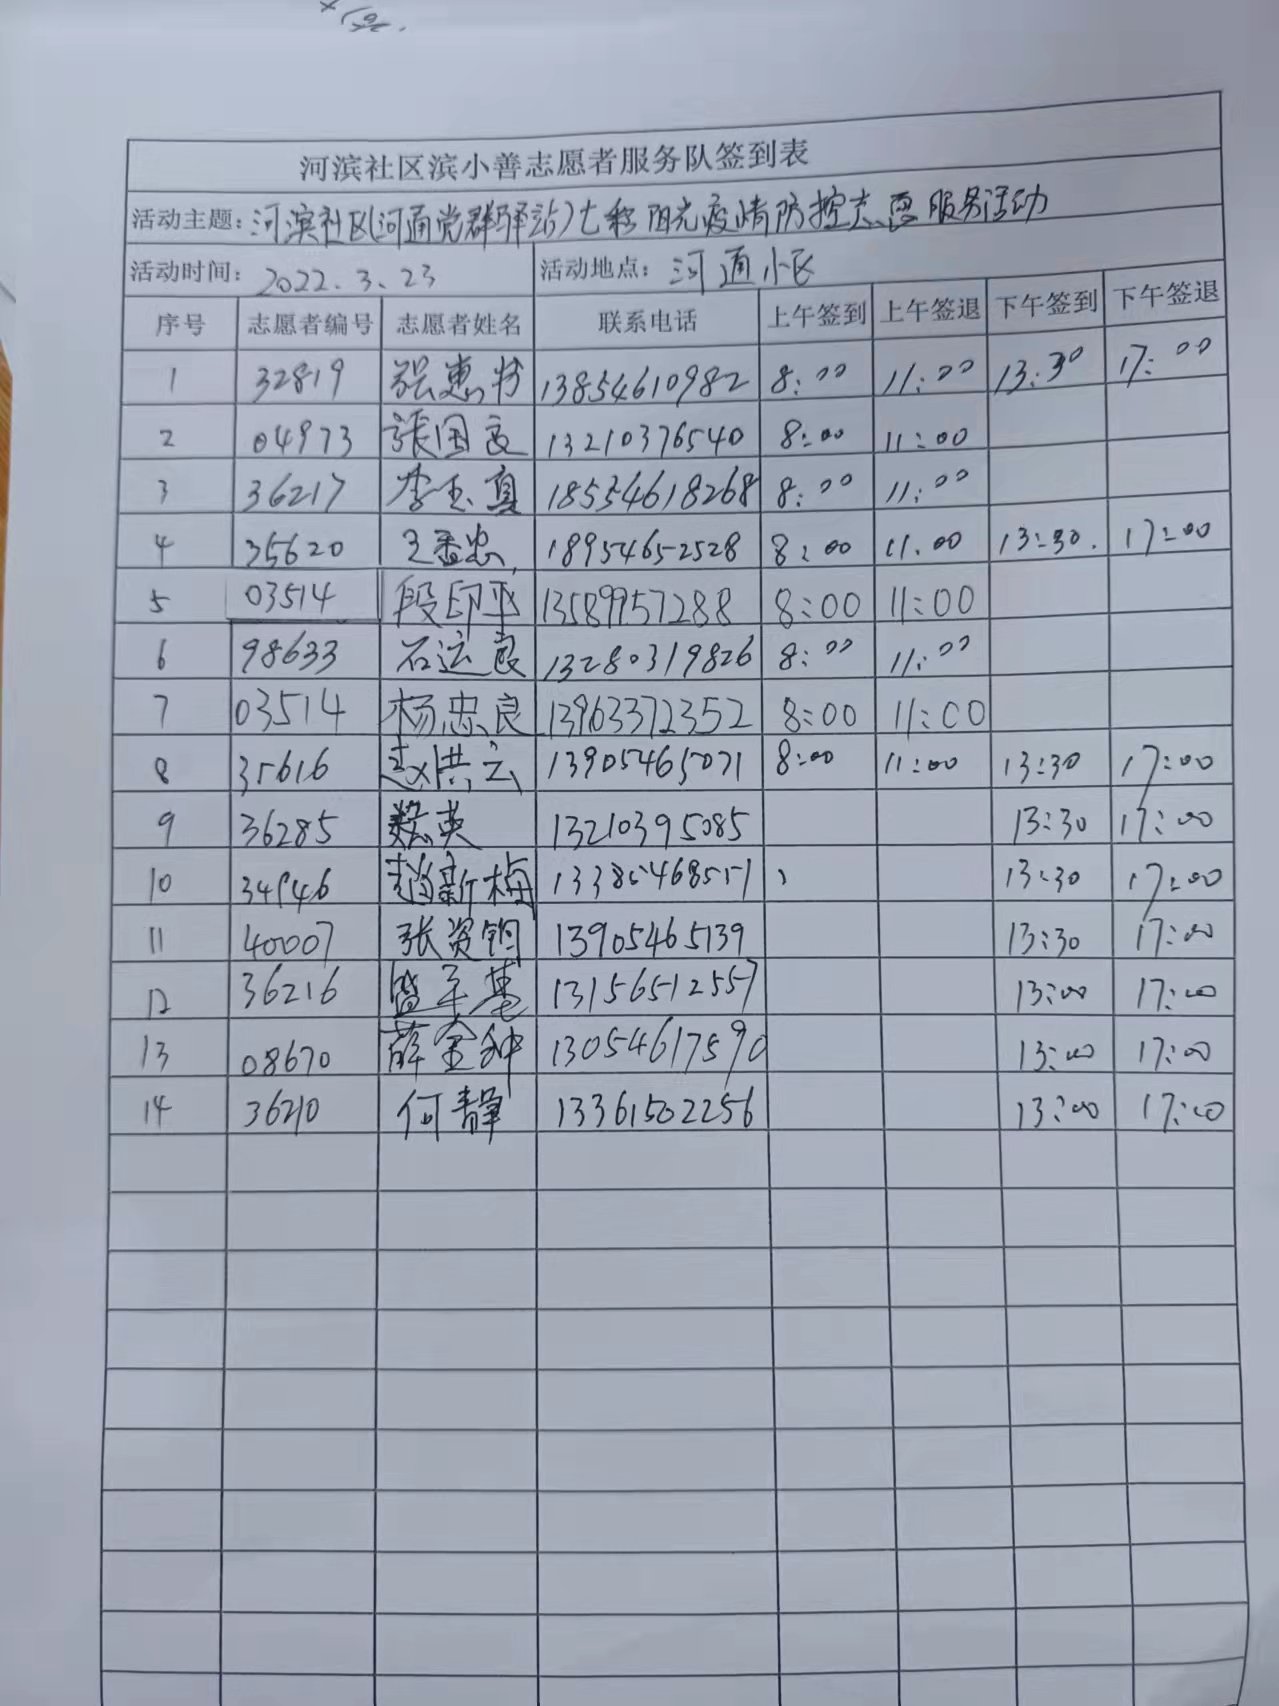 河滨社区滨小善志愿者服务队签到表
活动主题：河滨社区(河通党群驿站)七彩阳光疫情防控志愿服务活动
活动时间：2022.3.23 活动地点：河通小区
序号 志愿者编号 志愿者姓名 联系电话 上午签到 上午签退 下午签到 下午签退
1 32819 13854610982 8:00 11:00 13:30 17:00
2 04973 張国良 13210376540 8:00 11:00
3 36217 李玉真 18554618268 8:00 11:00
4 35620 18954652528 8:00 11.00 13:30. 17:00
5 03514 段印平 13589957288 8:00 11:00
6 98633 石运良 13280319826 8:00 11:00
7 03514 杨忠良 13963372352 8:00 11:00
8 35616 赵洪云 13905465071 8:00 11:00 13:30 17:00
9 36285 13210395085 13:30 17:00
10 赵新梅 13385468551 13:30 17:00
11 40007 张资钼 13905465139 13:30 17:00
12 36216 13156512557 13:00 17:00
13 08670 薛金种 13054617590 13:00 17:00
14 36210 何静 13361502256 13:00 17:00